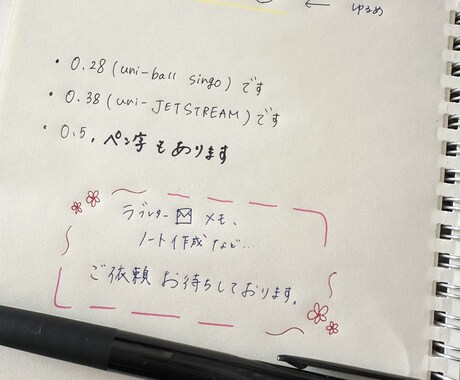 ← ゆるめ
・0.28 (uni-ball signo) です
・0.38 (uni-JETSTREAM) です
・0.5, ペン字もあります
ラブレター✉メモ、
ノート作成など…
ご依頼お待ちしております。